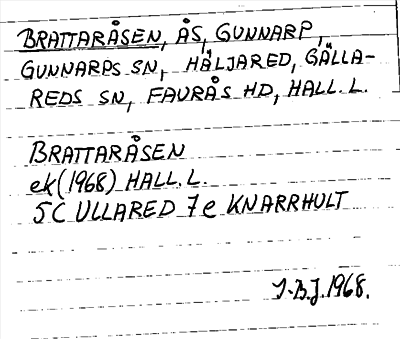 BRATTARÅSEN, ÅS, GUNNARP,
GUNNARPS SN, HÄLJARED, GÄLLA-
REDS SN, FAURÅS HD, HALL. L.
BRATTARÅSEN
ek (1968) HALL. L.
5C ULLARED 7e KNARRHULT
I.B.J. 1968.